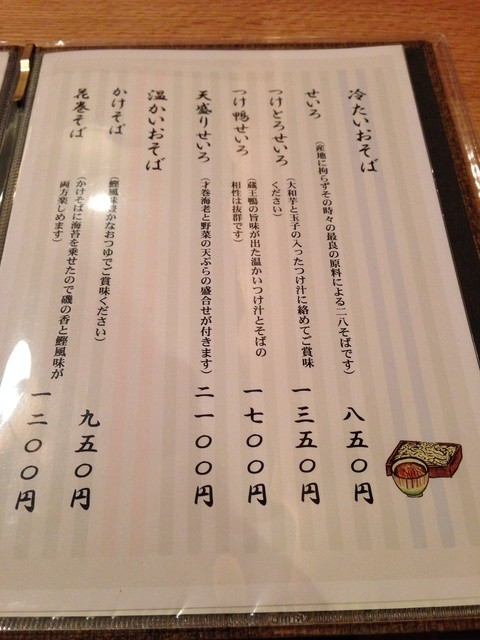 冷たいおそば
せいろ
(産地に拘らずその時々の最良の原料による二八そばです)
八五〇円
つけとろせいろ
(大和芋と玉子の入ったつけ汁に絡めてご賞味
ください)
一三五〇円
つけ鴨せいろ
(蔵王鴨の旨味が出た温かいつけ汁とそばの
相性は抜群です)
一七〇〇円
天盛りせいろ
(才巻海老と野菜の天ぷらの盛合せが付きます)
二一〇〇円
温かいおそば
かけそば
(鰹風味豊かなおつゆでご賞味ください)
九五〇円
花巻そば
(かけそばに海苔を乗せたので磯の香と鰹風味が
両方楽しめます)
一二〇〇円